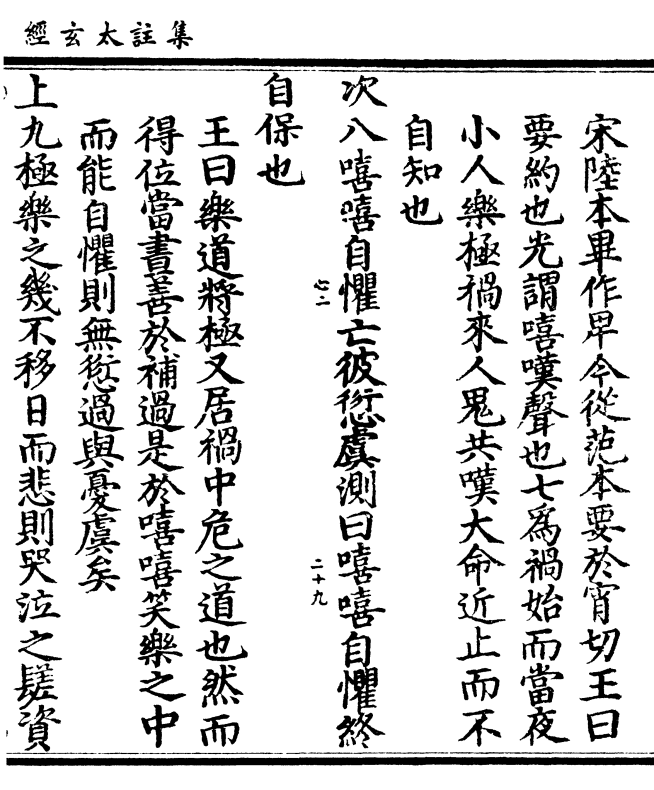 集註太玄經
宋陸本畢作㽙今從范本要於宵切王曰
要約也光謂嘻嘆聲也七爲禍始而當夜
小人樂極禍來人鬼共嘆大命近止而不
自知也
次八嘻嘻自懼亡彼愆虞測曰嘻嘻自懼終
心二
二十九
自保也
王曰樂道將極又居禍中危之道也然而
得位當晝善於補過是於嘻嘻笑樂之中
而能自懼則無愆過與憂虞矣
上九極樂之幾不移日而悲則哭泣之䰈資